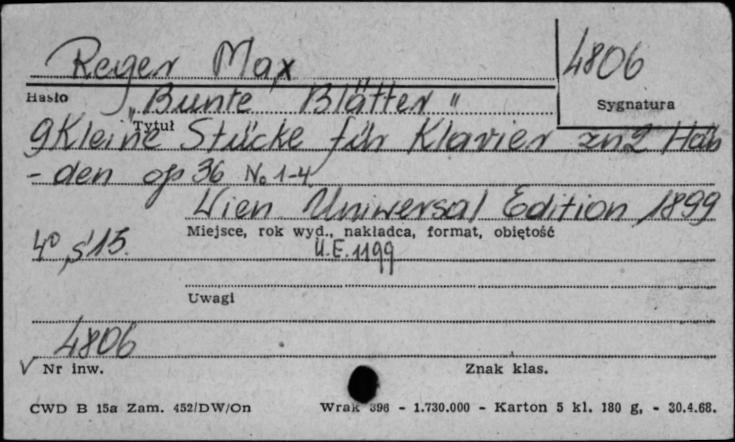 Reger Max
4806
Hasło
„Bunte Blätter"
Sygnatura
Tytuł
9 Kleine Stücke für Klavier zu 2 Hän
- den op 36 No 1-4
Wien Uniwersal Edition 1899
Miejsce, rok wyd., nakładca, format, objętość
4° s 15.
U.E. 1199
Uwagi
4806
√ Nr inw.
Znak klas.
CWD B 15a Zam. 452/DW/On
Wrak 396 - 1.730.000 - Karton 5 kl. 180 g, - 30.4.68.